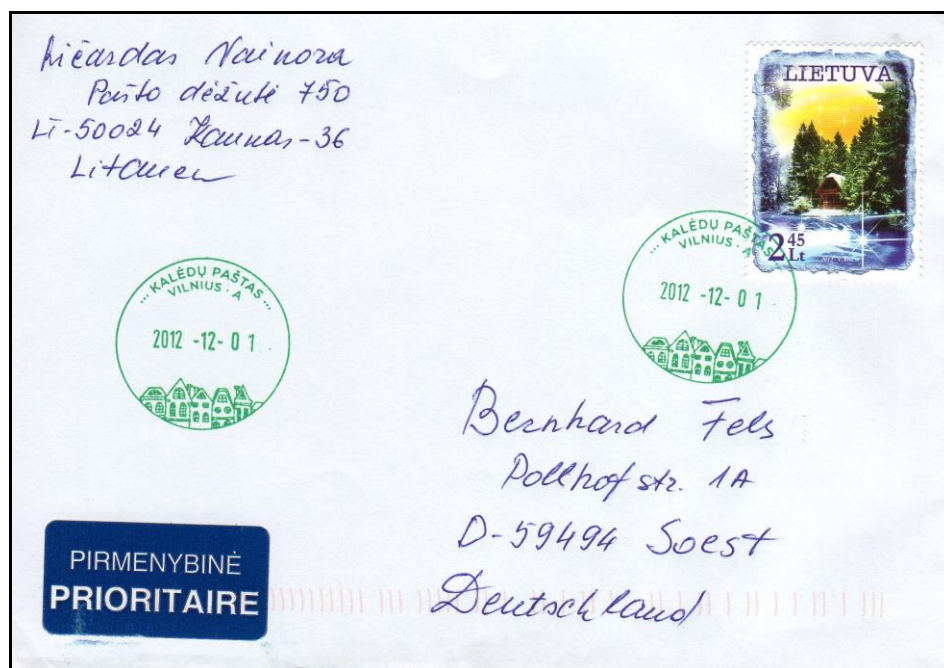 Ričardas Nainora
Pašto dėžutė 750
LT-50024 Kaunas-36
Litauen
LIETUVA
2 45
Lt
... KALĖDŲ PAŠTAS
VILNIUS · A
2012 -12- 01
... KALĖDŲ PAŠTAS ...
VILNIUS · A
2012 -12- 01
Bernhard Fels
Pollhofstr. 1A
D-59494 Soest
Deutschland
PIRMENYBINĖ
PRIORITAIRE